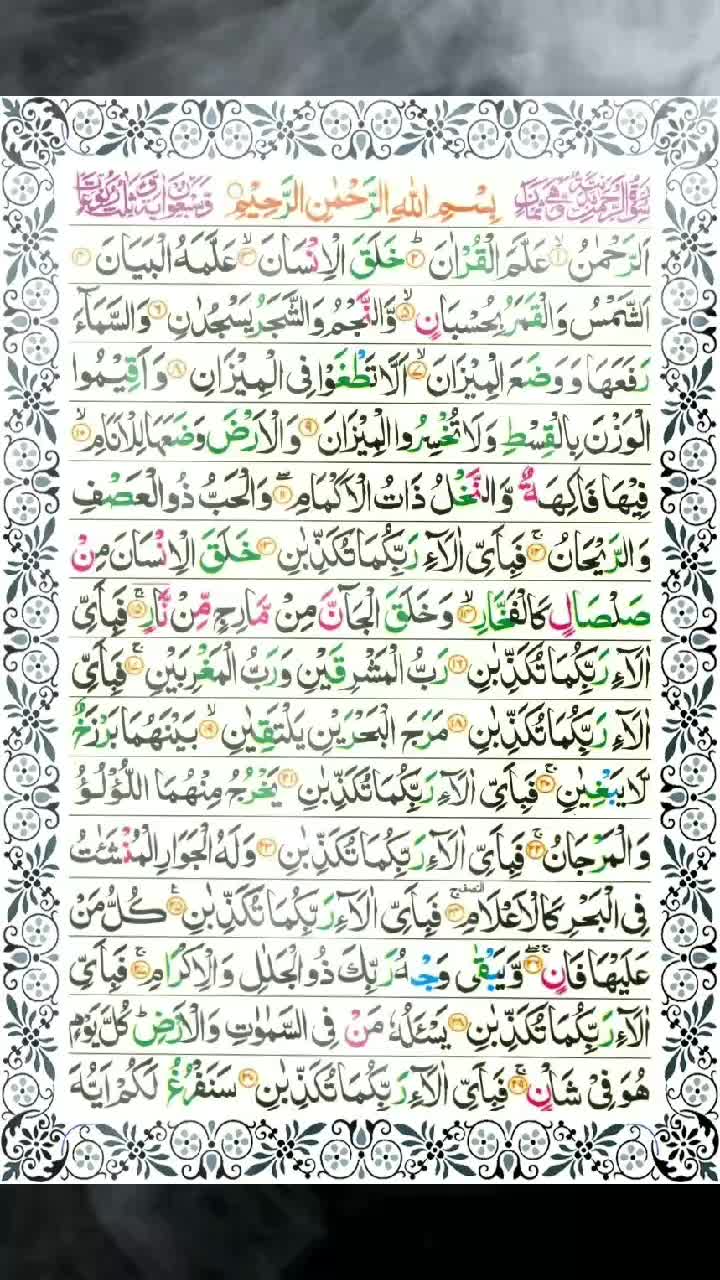 سُوْرَةُ الرَّحْمٰنِ مَدَنِيَّةٌ وَّهِيَ ثَمَانٌ بِسْمِ اللّٰهِ الرَّحْمٰنِ الرَّحِيْمِ وَّسَبْعُوْنَ اٰيَةً وَّثَلٰثُ رُكُوْعَاتٍ
اَلرَّحْمٰنُ ۙ﴿۱﴾ عَلَّمَ الْقُرْاٰنَ ؕ﴿۲﴾ خَلَقَ الْاِنْسَانَ ۙ﴿۳﴾ عَلَّمَهُ الْبَيَانَ ﴿۴﴾
اَلشَّمْسُ وَالْقَمَرُ بِحُسْبَانٍ ۙ﴿۵﴾ وَّالنَّجْمُ وَالشَّجَرُ يَسْجُدٰنِ ﴿۶﴾ وَالسَّمَآءَ
رَفَعَهَا وَوَضَعَ الْمِيْزَانَ ۙ﴿۷﴾ اَلَّا تَطْغَوْا فِى الْمِيْزَانِ ﴿۸﴾ وَاَقِيْمُوا
الْوَزْنَ بِالْقِسْطِ وَلَا تُخْسِرُوا الْمِيْزَانَ ﴿۹﴾ وَالْاَرْضَ وَضَعَهَا لِلْاَنَامِ ۙ﴿۱۰﴾
فِيْهَا فَاكِهَةٌ ۪ۙ وَّالنَّخْلُ ذَاتُ الْاَكْمَامِ ۖ﴿۱۱﴾ وَالْحَبُّ ذُو الْعَصْفِ
وَالرَّيْحَانُ ۚ﴿۱۲﴾ فَبِاَىِّ اٰلَآءِ رَبِّكُمَا تُكَذِّبٰنِ ﴿۱۳﴾ خَلَقَ الْاِنْسَانَ مِنْ
صَلْصَالٍ كَالْفَخَّارِ ۙ﴿۱۴﴾ وَخَلَقَ الْجَآنَّ مِنْ مَّارِجٍ مِّنْ نَّارٍ ۚ﴿۱۵﴾ فَبِاَىِّ
اٰلَآءِ رَبِّكُمَا تُكَذِّبٰنِ ﴿۱۶﴾ رَبُّ الْمَشْرِقَيْنِ وَرَبُّ الْمَغْرِبَيْنِ ۚ﴿۱۷﴾ فَبِاَىِّ
اٰلَآءِ رَبِّكُمَا تُكَذِّبٰنِ ﴿۱۸﴾ مَرَجَ الْبَحْرَيْنِ يَلْتَقِيٰنِ ۙ﴿۱۹﴾ بَيْنَهُمَا بَرْزَخٌ
لَّا يَبْغِيٰنِ ۚ﴿۲۰﴾ فَبِاَىِّ اٰلَآءِ رَبِّكُمَا تُكَذِّبٰنِ ﴿۲۱﴾ يَخْرُجُ مِنْهُمَا اللُّؤْلُؤُ
وَالْمَرْجَانُ ۚ﴿۲۲﴾ فَبِاَىِّ اٰلَآءِ رَبِّكُمَا تُكَذِّبٰنِ ﴿۲۳﴾ وَلَهُ الْجَوَارِ الْمُنْشَئٰتُ
فِى الْبَحْرِ كَالْاَعْلَامِ ۚ﴿۲۴﴾ فَبِاَىِّ اٰلَآءِ رَبِّكُمَا تُكَذِّبٰنِ ﴿۲۵﴾ كُلُّ مَنْ
عَلَيْهَا فَانٍ ۚۖ﴿۲۶﴾ وَّيَبْقٰى وَجْهُ رَبِّكَ ذُو الْجَلٰلِ وَالْاِكْرَامِ ۚ﴿۲۷﴾ فَبِاَىِّ
اٰلَآءِ رَبِّكُمَا تُكَذِّبٰنِ ﴿۲۸﴾ يَسْئَلُهٗ مَنْ فِى السَّمٰوٰتِ وَالْاَرْضِ ؕ كُلَّ يَوْمٍ
هُوَ فِىْ شَاْنٍ ۚ﴿۲۹﴾ فَبِاَىِّ اٰلَآءِ رَبِّكُمَا تُكَذِّبٰنِ ﴿۳۰﴾ سَنَفْرُغُ لَكُمْ اَيُّهَ